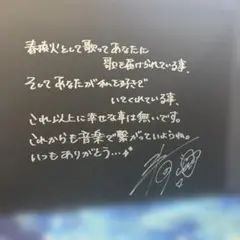 春猿火として歌ってあなたに
歌を届けられている事、
そしてあなたが私を好きで
いてくれている事、
これ以上に幸せな事は無いです。
これからも音楽で繋がっていようね。
いつもありがとう…